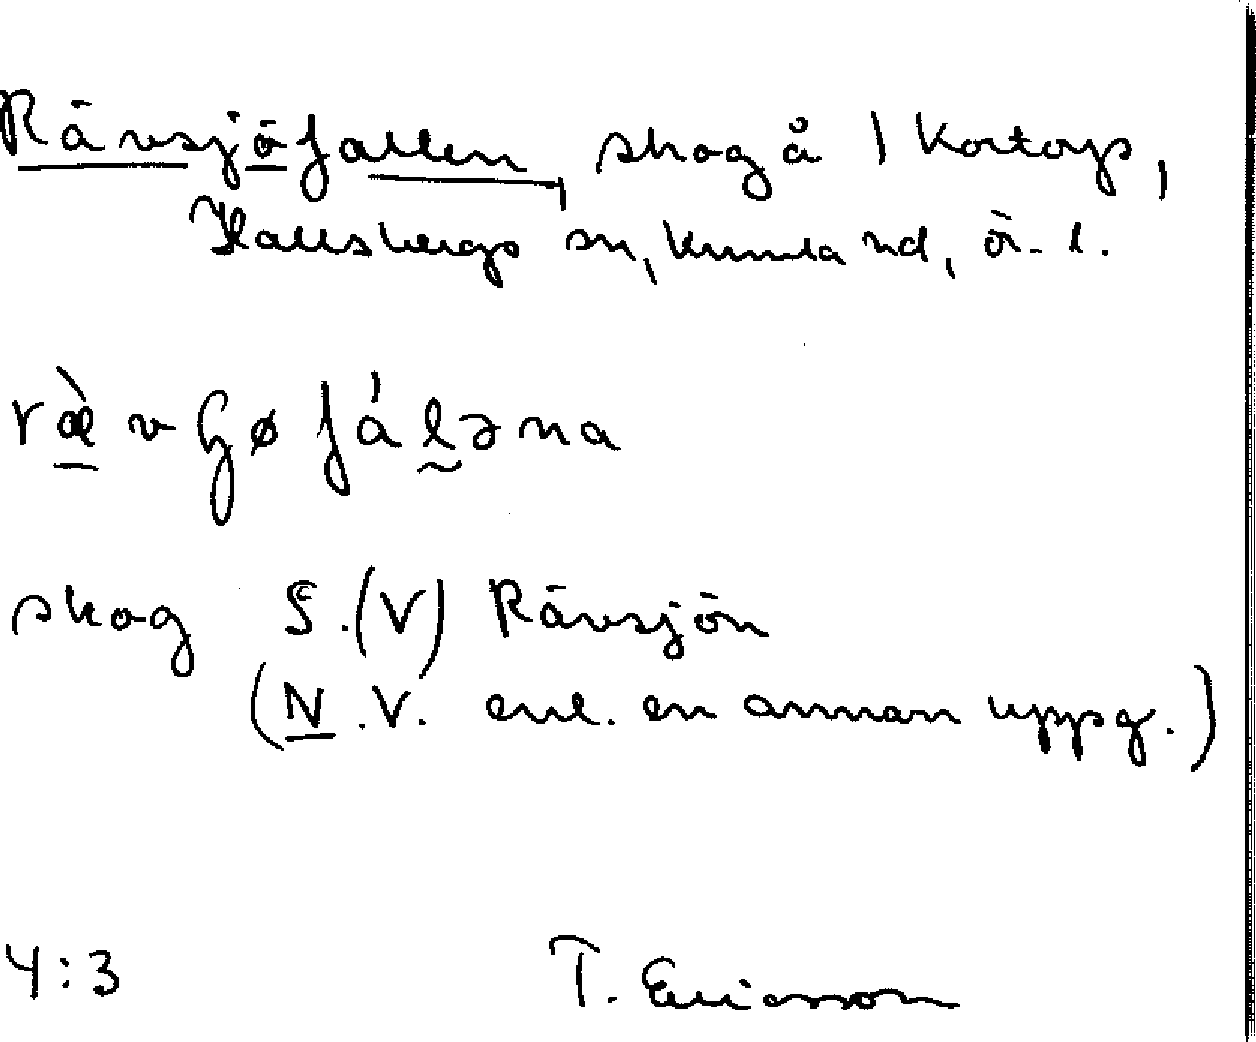 Rävsjöfallen, skog å 1 Kortorp,
Hallsbergs sn, Kumla hd, Ö. l.
ræ̀vʃøfáləna
skog S.(V) Rävsjön
(N.V. enl. en annan uppg.)
4:3 T. Ericsson